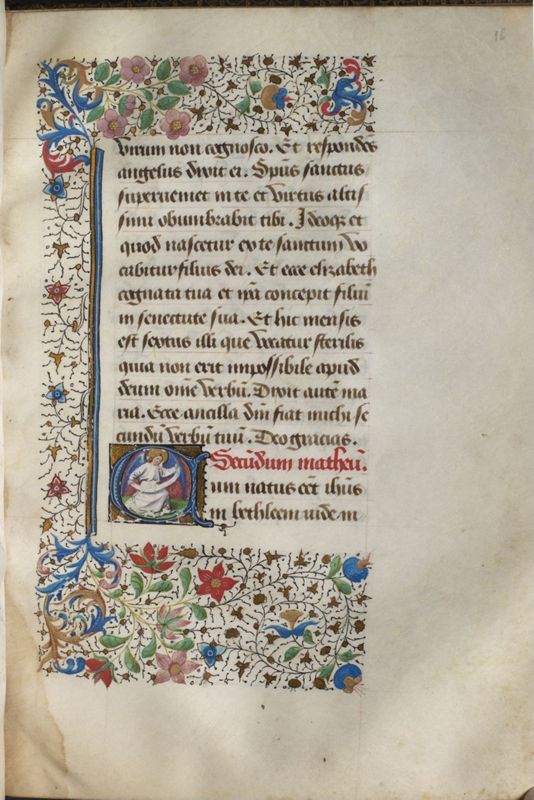 16
virum non cognosco. Et respondēs
angelus dixit ei. Spūs sanctus
superveniet in te et virtus altis
simi obumbrabit tibi. Ideoqꝫ et
quod nascetur ex te sanctum vo
cabitur filius dei. Et ecce elizabeth
cognata tua et ip̄a concepit filiū
in senectute sua. Et hic mensis
est sextus illi que vocatur sterilis
quia non erit impossibile apud
deum om̄e verbū. Dixit autē ma
ria. Ecce ancilla dn̄i fiat michi se
cundū verbū tuū. Deo gracias.
Secūdum matheū.
Cum natus eēt ihūs
in bethleem iude in